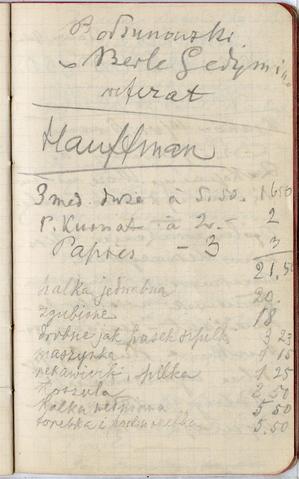 Bohunowski
Berle Gedymin
referat
Hauffman
3 med. duże à 5.50. 16.50
P. Kurnat - à 2.- 2
Papres - 3 3
21,50
halka jedwabna 20.
zgubione 18
drobne jak pasek szpilk 3 23
maszynka 1 15
rękawiczki, piłka 1 25
Koszula 2.50
halka wełniana 5.50
torebka i 5.50